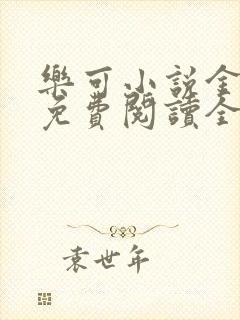 樂可小說全
免費閱讀全
袁世年